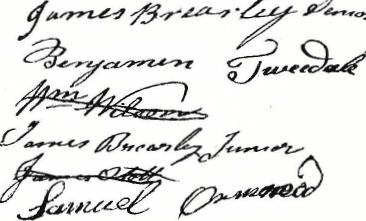 James Brearley Senior
Benjamen Tweedale
Wm Wilson
James Brearley Junior
James Stott
Samuel Ormerod